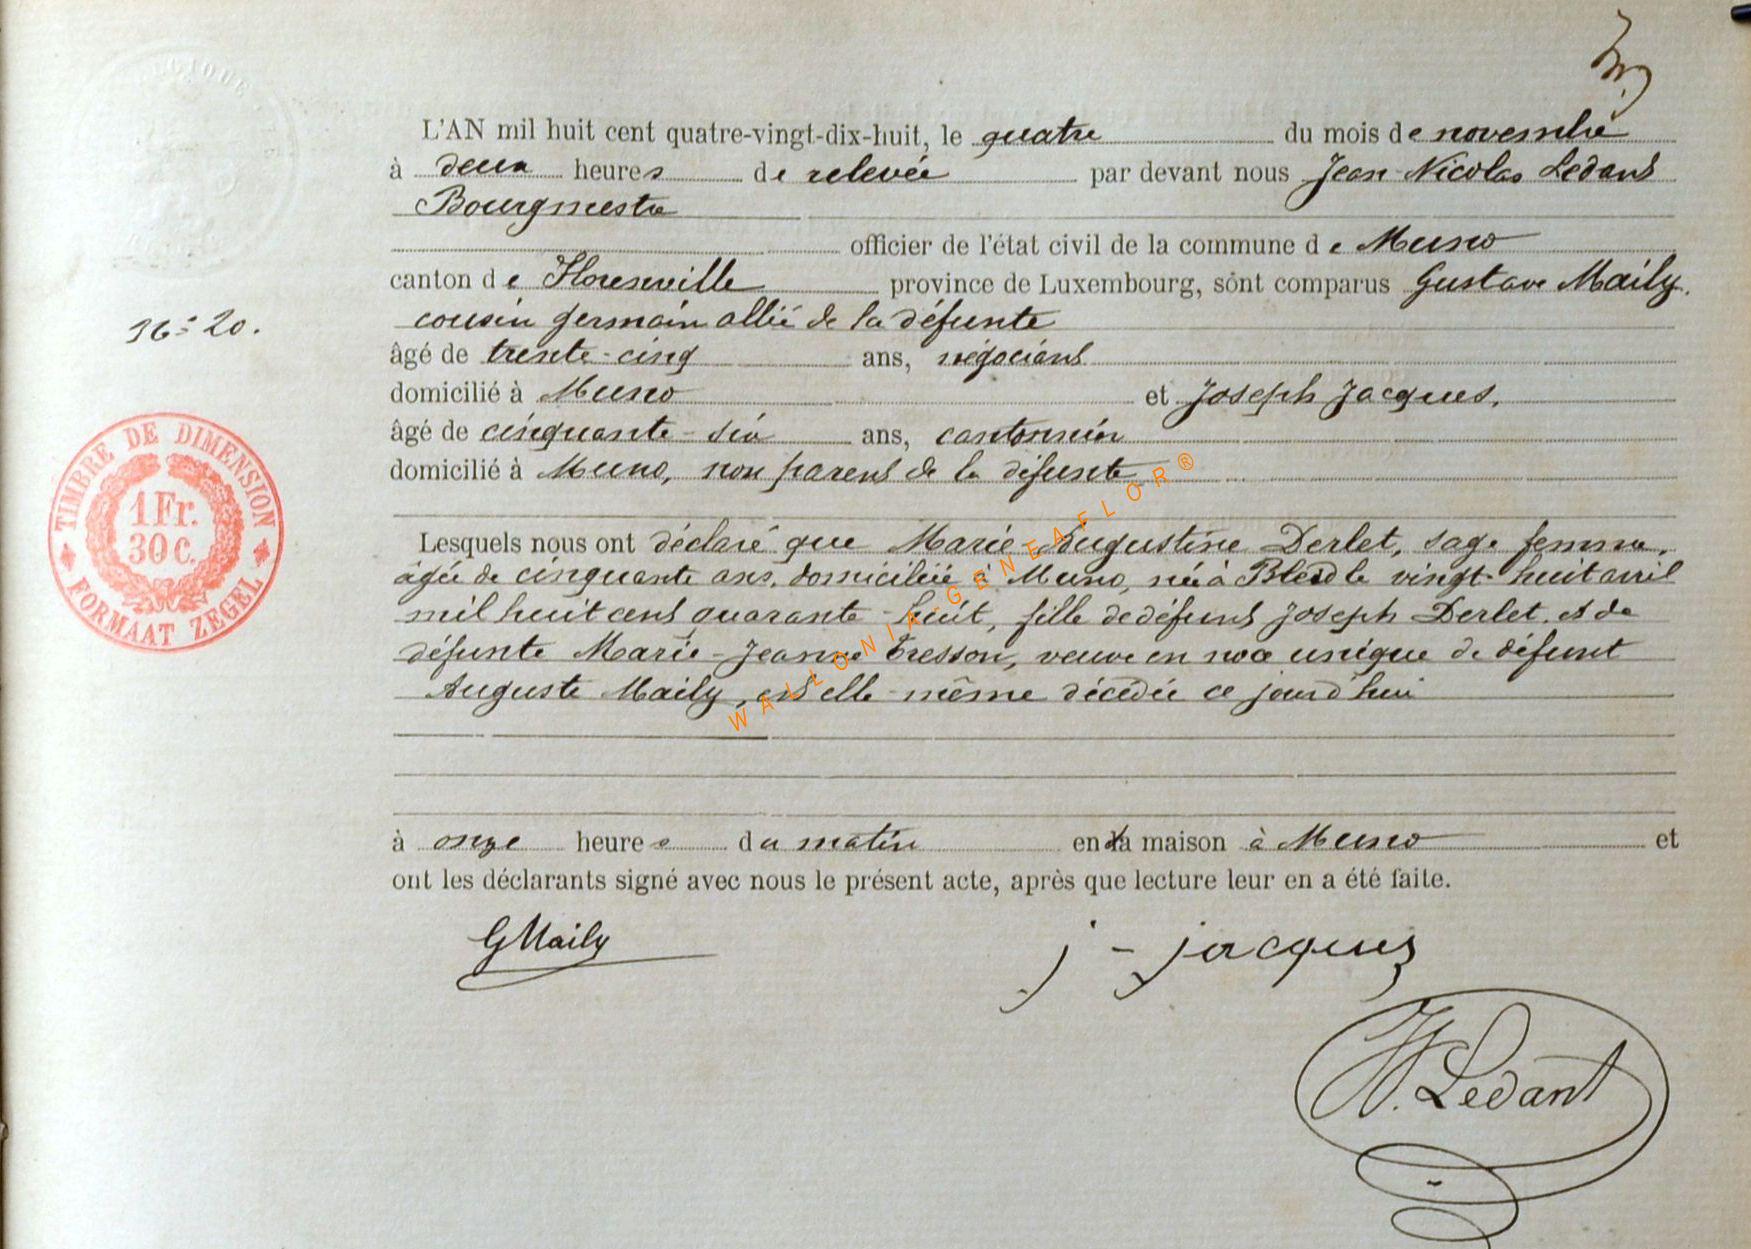 BELGIQUE
L'AN mil huit cent quatre-vingt-dix-huit, le quatre du mois de novembre
à deux heures de relevée par devant nous Jean Nicolas Ledant
Bourgmestre
officier de l'état civil de la commune de Muno
canton de Florenville province de Luxembourg, sont comparus Gustave Maily,
cousin germain allié de la défunte
16=20.
âgé de trente-cinq ans, négociant
domicilié à Muno et Joseph Jacques,
âgé de cinquante-six ans, cantonnier
domicilié à Muno, non parent de la défunte
TIMBRE DE DIMENSION
1 Fr.
30 C.
FORMAAT ZEGEL
Lesquels nous ont déclaré que Marie-Augustine Derlet, sage femme,
âgée de cinquante ans, domiciliée à Muno, née à le vingt-huit avril
mil huit cent quarante-huit, fille de défunt Joseph Derlet et de
défunte Marie-Jeanne Tresson, veuve en noce unique de défunt
Auguste Maily, est elle-même décédée ce jourd'hui
WALLONIE-GENEAFLOR®
à onze heures du matin en la maison à Muno et
ont les déclarants signé avec nous le présent acte, après que lecture leur en a été faite.
GMaily
j-jacques
N. Ledant